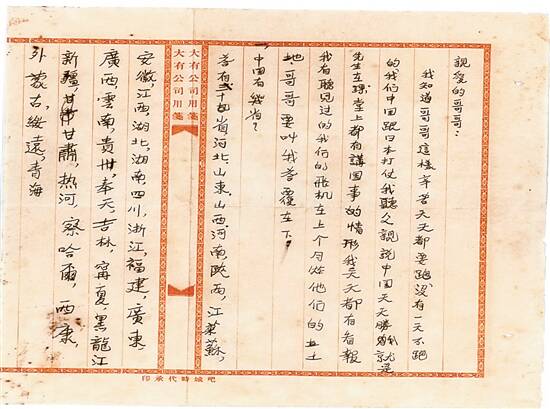 親愛的哥哥：
我知道哥哥這樣辛苦天天都要跑沒有一天不跑
的我们中国跟日本打仗我聽父親説中国天天勝就是
先生在課堂上都有講国事的情形我天天都有看報
我有聽見过的我们的飛机在上个月炸他们的土
地哥哥要叫我答覆在下。
中国有幾省？
答有十四省河北，山東，山西河南，陝西，江蘇，
大有公司用箋
大有公司用箋
安徽江西，湖北，湖南四川，浙江，福建，廣東，
廣西，雲南，貴州，奉天，吉林，甯夏，黑龍江
新疆，甘肅，热河，察哈爾，西康，
外蒙古，綏遠，青海
吧城時代承印